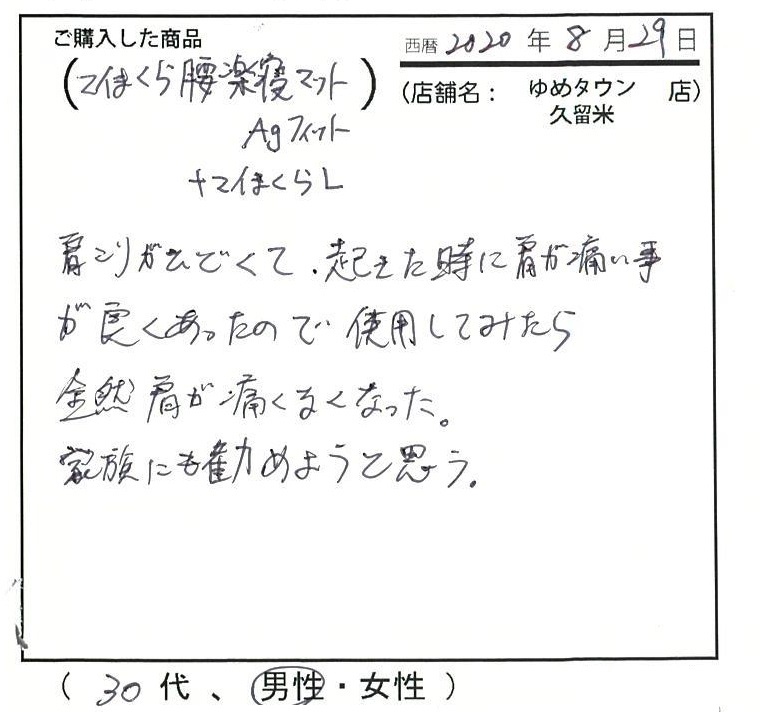 ご購入した商品
西暦 2020 年 8 月 29 日
(てまくら腰楽寝マット)
(店舗名： ゆめタウン 久留米 店)
Agフィット
+てまくらL
肩こりがひどくて、起きた時に肩が痛い事
が良くあったので使用してみたら
全然肩が痛くなくなった。
家族にも勧めようと思う。
( 30 代 、 男性・女性 )